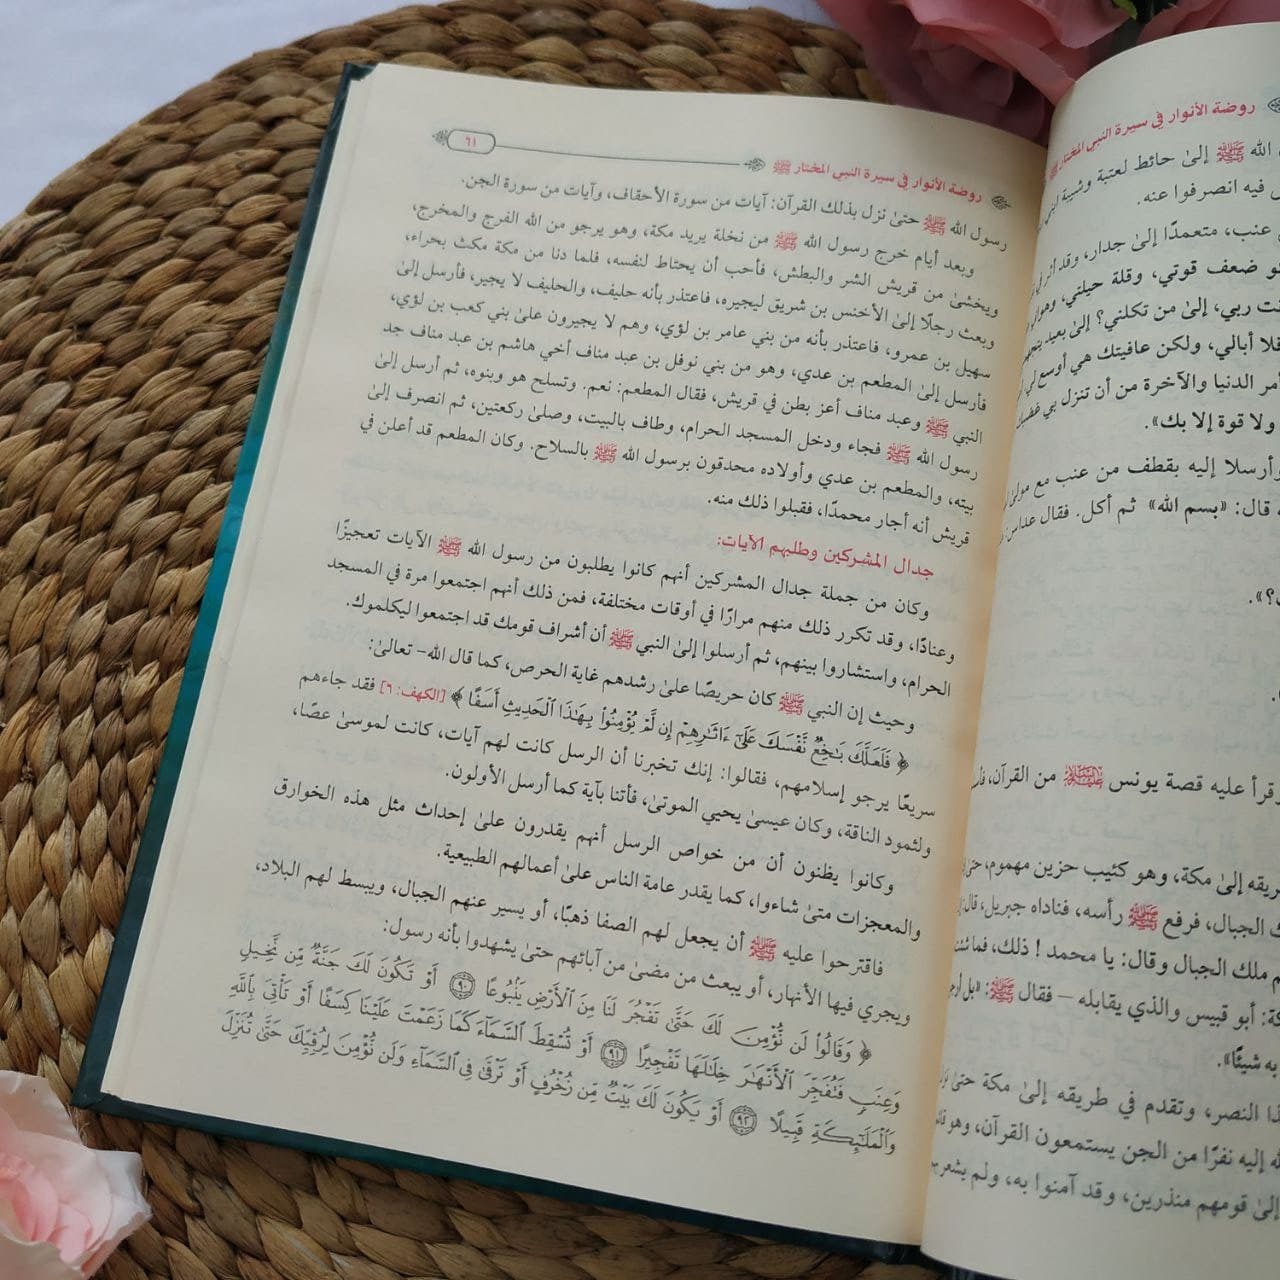 روضة الأنوار في سيرة النبي المختار ﷺ
الله ﷺ إلىٰ حائط لعتبة وشيبة ابني
فيه انصرفوا عنه.
عنب، متعمدًا إلىٰ جدار، وقد أثر في
ضعف قوتي، وقلة حيلتي، وهواني
ربي، إلىٰ من تكلني؟ إلىٰ بعيد يتجهمني
فلا أبالي، ولكن عافيتك هي أوسع لي
أمر الدنيا والآخرة من أن تنزل بي غضبك
ولا قوة إلا بك».
وأرسلا إليه بقطف من عنب مع مولىٰ
قال: «بسم الله» ثم أكل. فقال عداس:
قرأ عليه قصة يونس عليه السلام من القرآن،
طريقه إلىٰ مكة، وهو كئيب حزين مهموم،
الجبال، فرفع ﷺ رأسه، فناداه جبريل،
ملك الجبال وقال: يا محمد ! ذلك، فما شئت
أبو قبيس والذي يقابله – فقال ﷺ: «بل أرجو
به شيئًا».
النصر، وتقدم في طريقه إلىٰ مكة حتىٰ
إليه نفرًا من الجن يستمعون القرآن، وهو
إلىٰ قومهم منذرين، وقد آمنوا به، ولم يشعر
روضة الأنوار في سيرة النبي المختار ﷺ ٦١
رسول الله ﷺ حتىٰ نزل بذلك القرآن: آيات من سورة الأحقاف، وآيات من سورة الجن.
وبعد أيام خرج رسول الله ﷺ من نخلة يريد مكة، وهو يرجو من الله الفرج والمخرج،
ويخشىٰ من قريش الشر والبطش، فأحب أن يحتاط لنفسه، فلما دنا من مكة مكث بحراء،
وبعث رجلًا إلىٰ الأخنس بن شريق ليجيره، فاعتذر بأنه حليف، والحليف لا يجير، فأرسل إلىٰ
سهيل بن عمرو، فاعتذر بأنه من بني عامر بن لؤي، وهم لا يجيرون علىٰ بني كعب بن لؤي،
فأرسل إلىٰ المطعم بن عدي، وهو من بني نوفل بن عبد مناف أخي هاشم بن عبد مناف جد
النبي ﷺ وعبد مناف أعز بطن في قريش، فقال المطعم: نعم. وتسلح هو وبنوه، ثم أرسل إلىٰ
رسول الله ﷺ فجاء ودخل المسجد الحرام، وطاف بالبيت، وصلىٰ ركعتين، ثم انصرف إلىٰ
بيته، والمطعم بن عدي وأولاده محدقون برسول الله ﷺ بالسلاح. وكان المطعم قد أعلن في
قريش أنه أجار محمدًا، فقبلوا ذلك منه.
جدال المشركين وطلبهم الآيات:
وكان من جملة جدال المشركين أنهم كانوا يطلبون من رسول الله ﷺ الآيات تعجيزًا
وعنادًا، وقد تكرر ذلك منهم مرارًا في أوقات مختلفة، فمن ذلك أنهم اجتمعوا مرة في المسجد
الحرام، واستشاروا بينهم، ثم أرسلوا إلىٰ النبي ﷺ أن أشراف قومك قد اجتمعوا ليكلموك.
وحيث إن النبي ﷺ كان حريصًا علىٰ رشدهم غاية الحرص، كما قال الله– تعالىٰ:
﴿ فَلَعَلَّكَ بَـٰخِعٌ نَّفْسَكَ عَلَىٰٓ ءَاثَـٰرِهِمْ إِن لَّمْ يُؤْمِنُوا۟ بِهَـٰذَا ٱلْحَدِيثِ أَسَفًا ﴾ [الكهف: ٦] فقد جاءهم
سريعًا يرجو إسلامهم، فقالوا: إنك تخبرنا أن الرسل كانت لهم آيات، كانت لموسىٰ عصًا،
ولثمود الناقة، وكان عيسىٰ يحيي الموتىٰ، فأتنا بآية كما أرسل الأولون.
وكانوا يظنون أن من خواص الرسل أنهم يقدرون علىٰ إحداث مثل هذه الخوارق
والمعجزات متىٰ شاءوا، كما يقدر عامة الناس علىٰ أعمالهم الطبيعية.
فاقترحوا عليه ﷺ أن يجعل لهم الصفا ذهبًا، أو يسير عنهم الجبال، ويبسط لهم البلاد،
ويجري فيها الأنهار، أو يبعث من مضىٰ من آبائهم حتىٰ يشهدوا بأنه رسول:
﴿ وَقَالُوا۟ لَن نُّؤْمِنَ لَكَ حَتَّىٰ تَفْجُرَ لَنَا مِنَ ٱلْأَرْضِ يَنۢبُوعًا ۝٩٠ أَوْ تَكُونَ لَكَ جَنَّةٌ مِّن نَّخِيلٍ
وَعِنَبٍ فَتُفَجِّرَ ٱلْأَنْهَـٰرَ خِلَـٰلَهَا تَفْجِيرًا ۝٩١ أَوْ تُسْقِطَ ٱلسَّمَآءَ كَمَا زَعَمْتَ عَلَيْنَا كِسَفًا أَوْ تَأْتِىَ بِٱللَّهِ
وَٱلْمَلَـٰٓئِكَةِ قَبِيلًا ۝٩٢ أَوْ يَكُونَ لَكَ بَيْتٌ مِّن زُخْرُفٍ أَوْ تَرْقَىٰ فِى ٱلسَّمَآءِ وَلَن نُّؤْمِنَ لِرُقِيِّكَ حَتَّىٰ تُنَزِّلَ